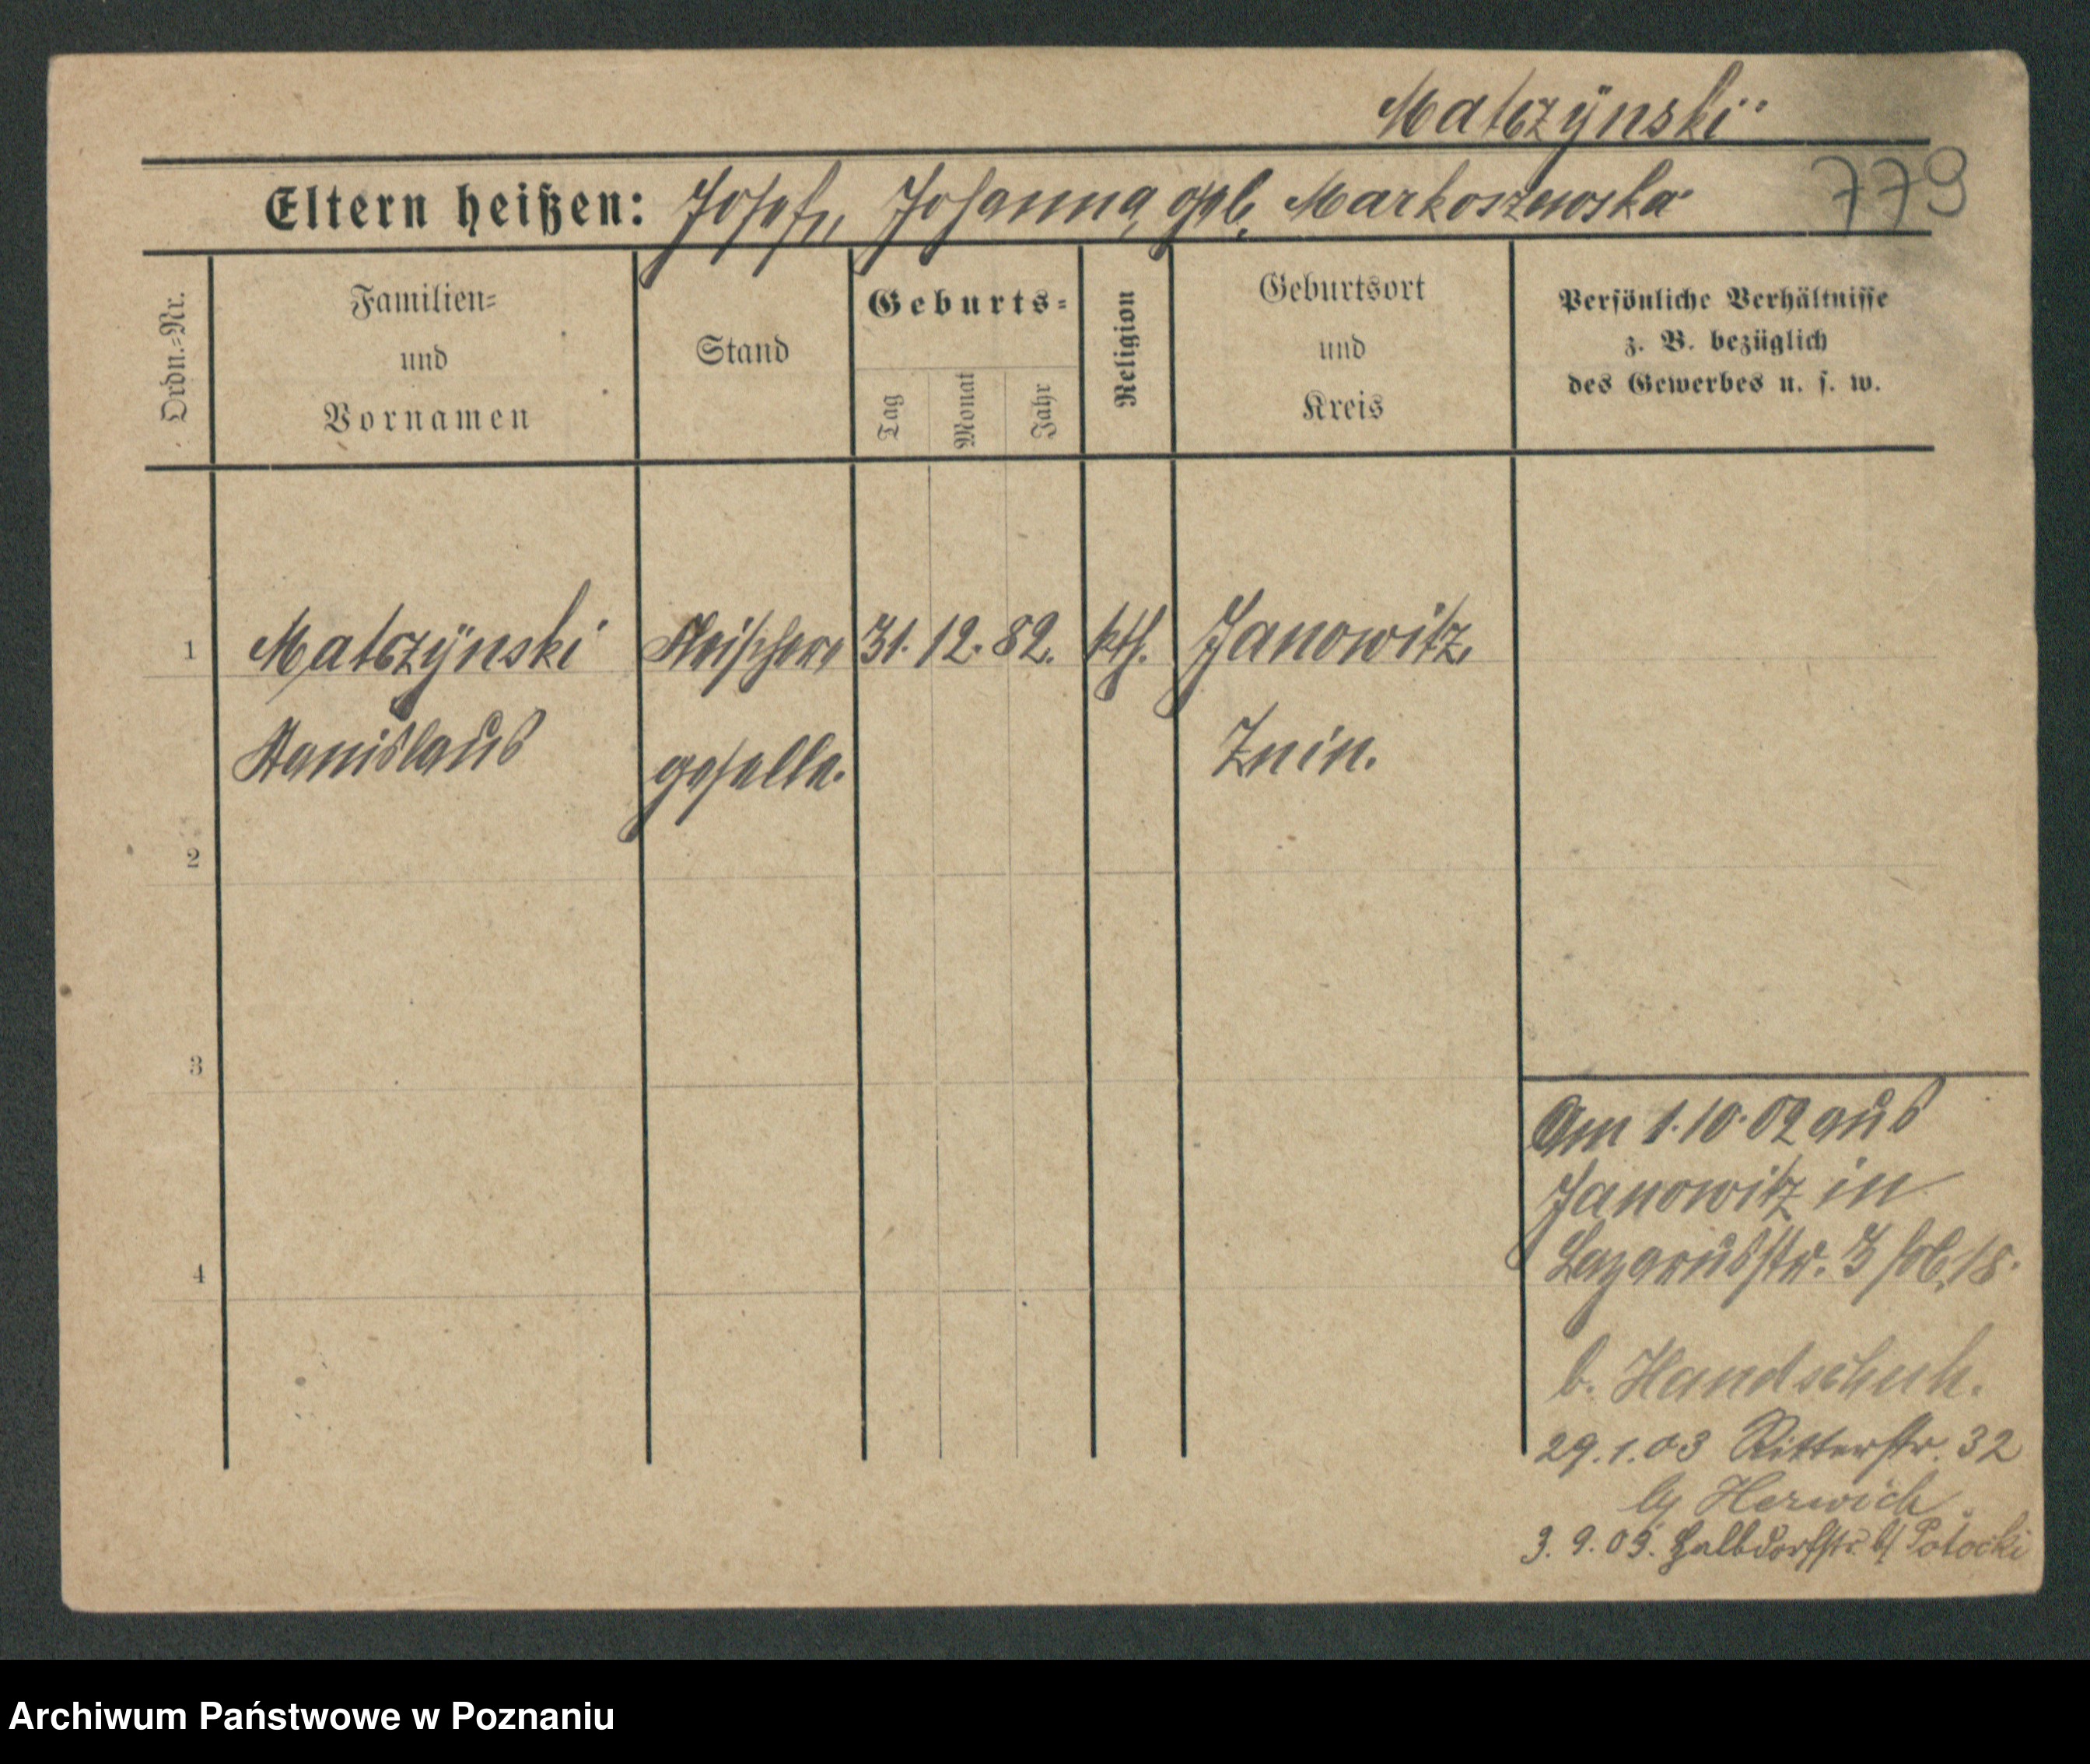 Matczÿnski
Eltern heißen: Josef, Johanna, geb. Markoszewska
779
Ordn.-Nr.
Familien-
und
Vornamen
Stand
Geburts-
Tag
Monat
Jahr
Religion
Geburtsort
und
Kreis
Persönliche Verhältnisse
z. B. bezüglich
des Gewerbes u. s. w.
1
Matczÿnski Fleischer 31. 12. 82. kth. Janowitz,
Stanislaus geselle. Znin.
2
3
4
Am 1.10.02 aus
Janowitz in
Lazarusstr. 3
b. Handschuh.
29.1.03 Ritterstr. 32
b/ Herwich
3. 9. 03. Halbdorfstr. b/ Potocki
Archiwum Państwowe w Poznaniu